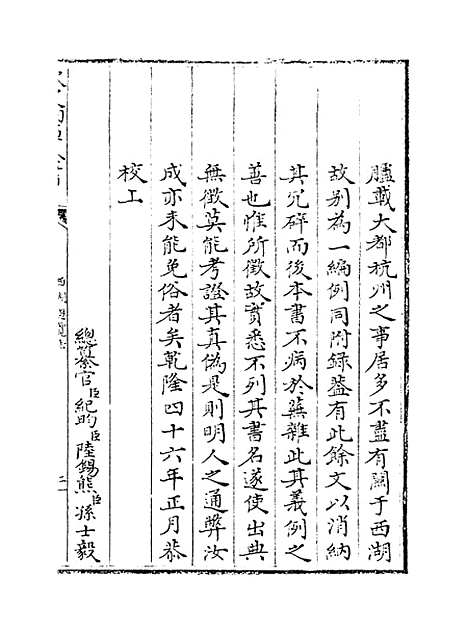 臚載大都杭州之事居多不盡有關于西湖
故别為一編例同附録葢有此餘文以消納
其冗碎而後本書不病於蕪雜此其義例之
善也惟所徵故實悉不列其書名遂使出典
無徵莫能考證其真偽是則明人之通弊汝
成亦未能免俗者矣乾隆四十六年正月恭
校上
總纂官臣紀昀臣陸錫熊臣孫士毅